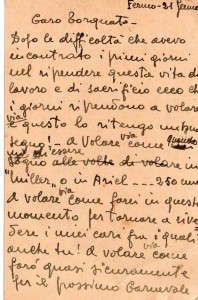 Fermo - 21 Genna
Caro Torquato -
Dopo le difficoltà che avevo
incontrato i primi giorni
nel riprendere questa vita di
lavoro e di sacrificio ecco che
i giorni riprendono a volare
e questo lo ritengo un buon
segno! a volare via come
sogno alle volte di volare in
"Miller" o in Ariel --- 250 cmc
a volare via come farei in questo
momento per tornare a rive
dere i miei cari fra i quali
anche tu! a volare via come
farò quasi sicuramente
per il prossimo Carnevale